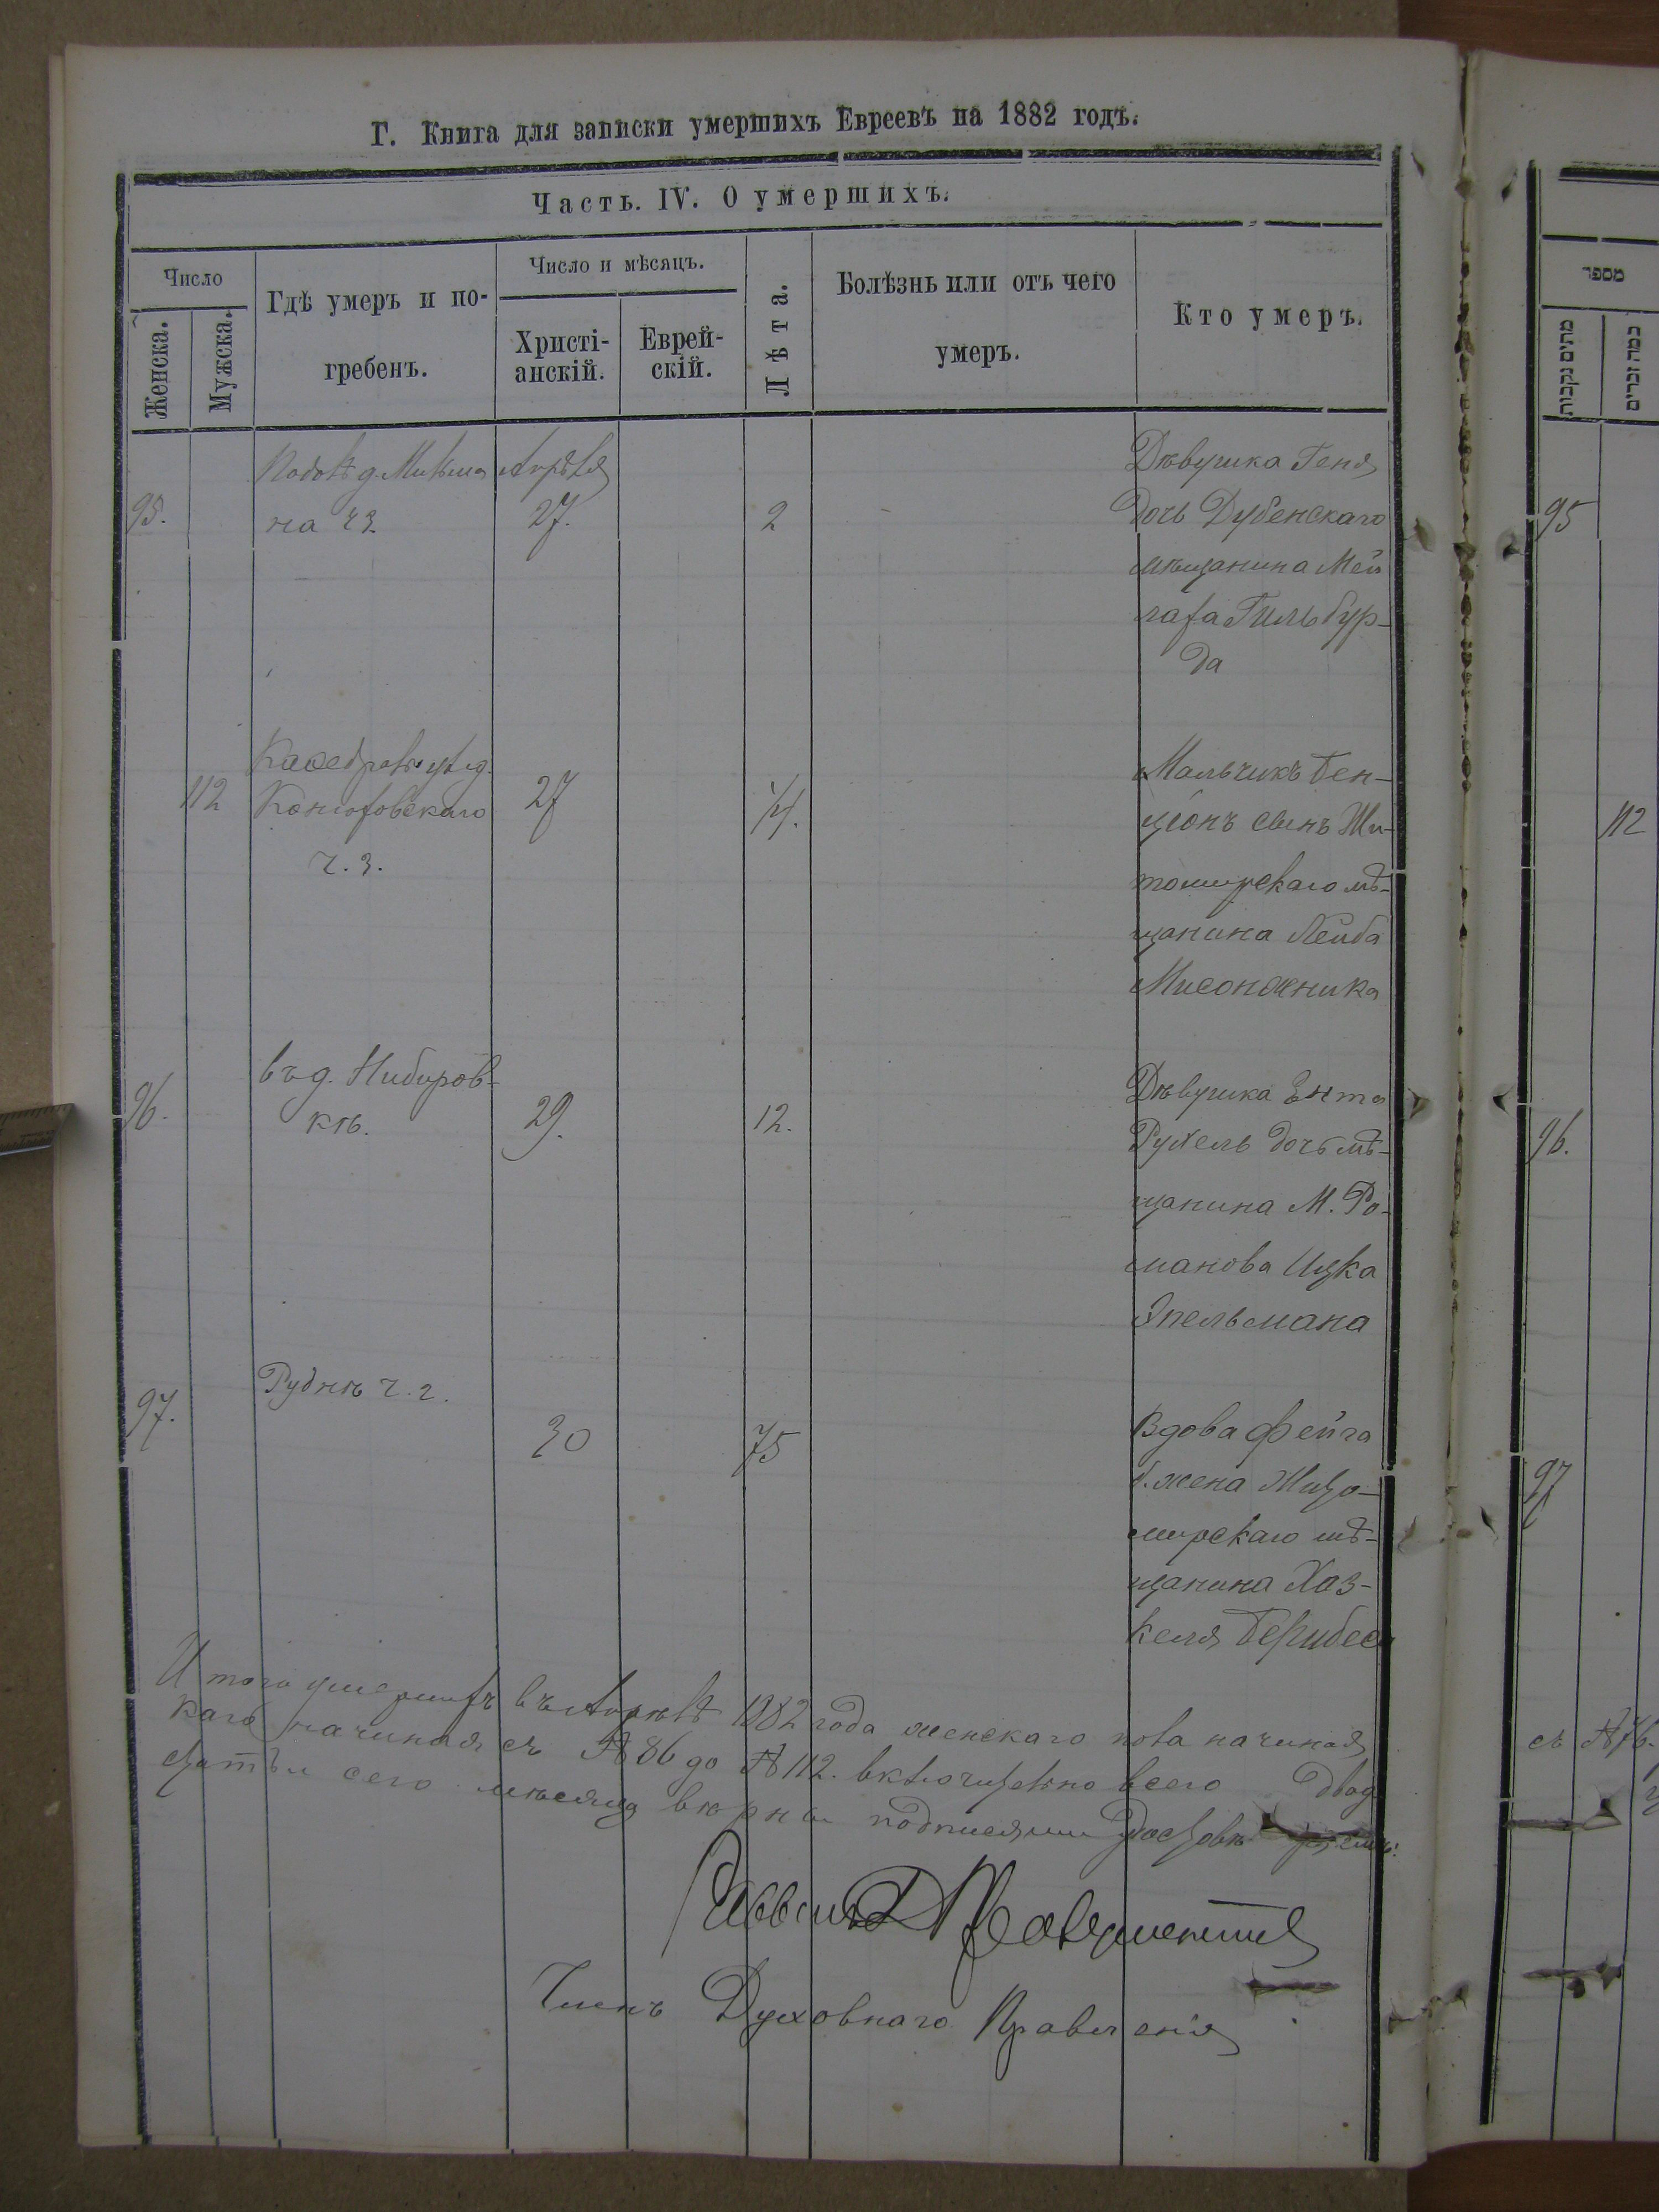 Г. Книга для записки умершихъ Евреевъ на 1882 годъ.
Часть. IV. О умершихъ.
Число
Женска.
Мужска.
Гдѣ умеръ и по-
гребенъ.
Число и мѣсяцъ.
Христі-
анскій.
Еврей-
скій.
Лѣта.
Болѣзнь или отъ чего
умеръ.
Кто умеръ.
95.
на ч 3.
Апрѣля
27.
2
Дѣвушка Геня
дочь Дубенскаго
мѣщанина Мей
Гильбур-
да
112
ч. 3.
27
1/4.
Мальчикъ Бен-
ціонъ сынъ Жи-
томирскаго мѣ-
щанина Лейба
Мисонжника
96.
въ д.
кѣ.
29.
12.
Дѣвушка Ента
Рухель дочь мѣ-
щанина М. Ро-
манова Ицка
Эпельмана
97.
Руднѣ ч. 2.
30
75
Вдова Фейга
б. жена Жито-
мирскаго мѣ-
щанина Хаз-
келя
Итого умершихъ въ Апрѣлѣ 1882 года женскаго пола начиная
каго начиная съ № 86 до № 112. включительно всего двад
сего мѣсяца вѣрны подписями
Членъ Духовнаго Правленія
מספר
מתים נקבות
כמה זכרים
95
112
96.
97
съ № 76.